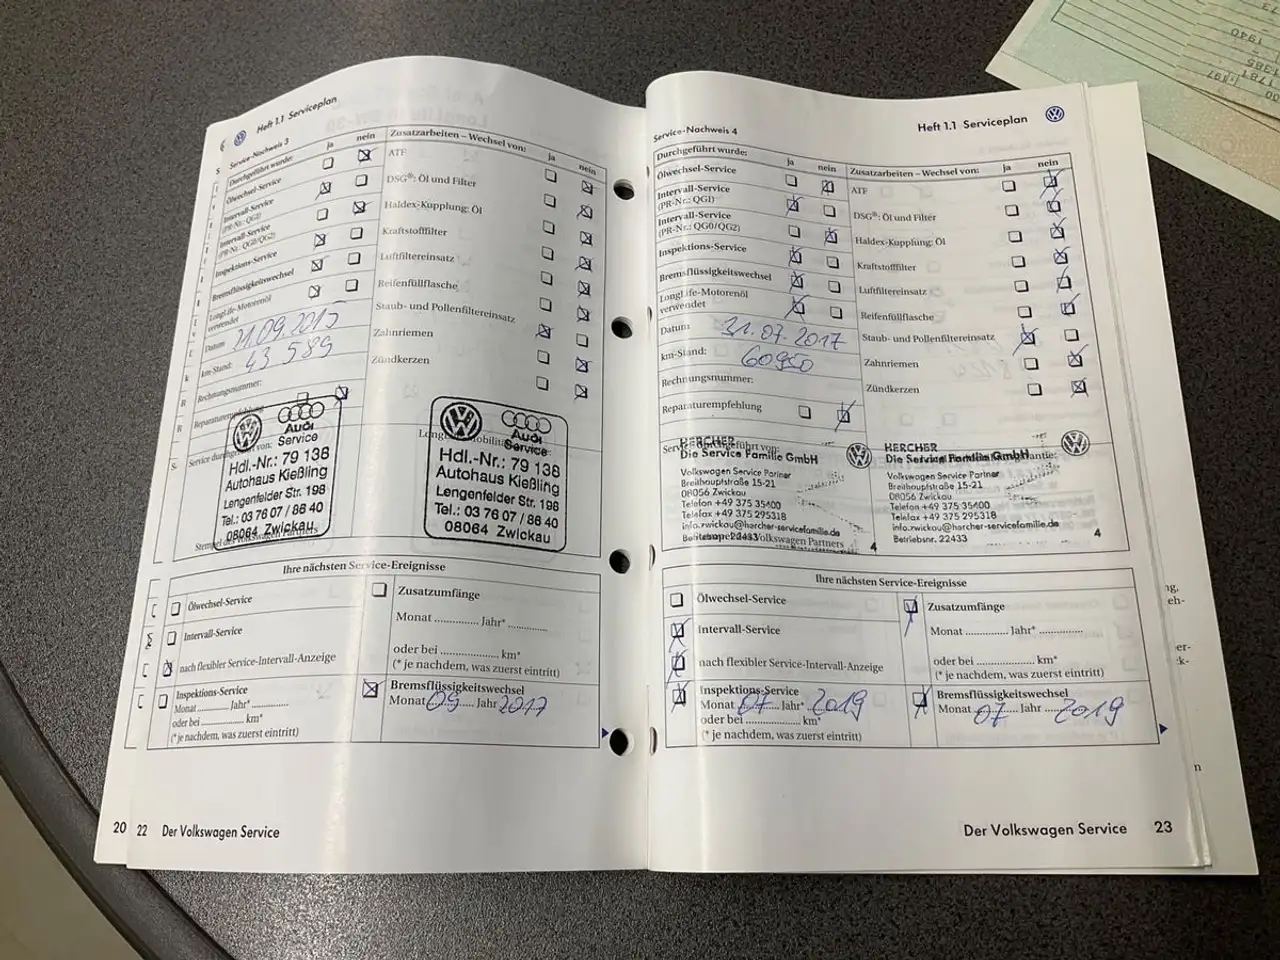 Heft 1.1 Serviceplan
Service-Nachweis 3
Durchgeführt wurde:
ja
nein
Ölwechsel-Service
Intervall-Service
(PR-Nr.: QG1)
Intervall-Service
(PR-Nr.: QG0/QG2)
Inspektions-Service
Bremsflüssigkeitswechsel
LongLife-Motorenöl
verwendet
Datum 21.09.2015
km-Stand: 43 589
Rechnungsnummer:
Reparaturempfehlung
Service durchgeführt von:
Zusatzarbeiten – Wechsel von:
ja
nein
ATF
DSG®: Öl und Filter
Haldex-Kupplung: Öl
Kraftstofffilter
Luftfiltereinsatz
Reifenfüllflasche
Staub- und Pollenfiltereinsatz
Zahnriemen
Zündkerzen
Audi
Service
Hdl.-Nr.: 79 138
Autohaus Kießling
Lengenfelder Str. 198
Tel.: 03 76 07 / 86 40
08064 Zwickau
Audi
Service
Hdl.-Nr.: 79 138
Autohaus Kießling
Lengenfelder Str. 198
Tel.: 03 76 07 / 86 40
08064 Zwickau
Ihre nächsten Service-Ereignisse
Ölwechsel-Service
Intervall-Service
nach flexibler Service-Intervall-Anzeige
Inspektions-Service
Monat ........ Jahr* ............
oder bei .............. km*
(* je nachdem, was zuerst eintritt)
Zusatzumfänge
Monat ............. Jahr* ............
oder bei .................. km*
(* je nachdem, was zuerst eintritt)
Bremsflüssigkeitswechsel
Monat 09 Jahr 2017
20
22 Der Volkswagen Service
Heft 1.1 Serviceplan
Service-Nachweis 4
Durchgeführt wurde:
ja
nein
Ölwechsel-Service
Intervall-Service
(PR-Nr.: QG1)
Intervall-Service
(PR-Nr.: QG0/QG2)
Inspektions-Service
Bremsflüssigkeitswechsel
LongLife-Motorenöl
verwendet
Datum 31.07.2017
km-Stand: 60950
Rechnungsnummer:
Reparaturempfehlung
Zusatzarbeiten – Wechsel von:
ja
nein
ATF
DSG®: Öl und Filter
Haldex-Kupplung: Öl
Kraftstofffilter
Luftfiltereinsatz
Reifenfüllflasche
Staub- und Pollenfiltereinsatz
Zahnriemen
Zündkerzen
HERCHER
Die Service Familie GmbH
Volkswagen Service Partner
Breithauptstraße 15-21
08056 Zwickau
Telefon +49 375 35400
Telefax +49 375 295318
info.zwickau@hercher-servicefamilie.de
Volkswagen Partners
4
HERCHER
Die Service Familie GmbH
Volkswagen Service Partner
Breithauptstraße 15-21
08056 Zwickau
Telefon +49 375 35400
Telefax +49 375 295318
info.zwickau@hercher-servicefamilie.de
Betriebsnr. 22433
4
Ihre nächsten Service-Ereignisse
Ölwechsel-Service
Intervall-Service
nach flexibler Service-Intervall-Anzeige
Inspektions-Service
Monat 07 Jahr* 2019
oder bei .............. km*
(* je nachdem, was zuerst eintritt)
Zusatzumfänge
Monat ............. Jahr* .............
oder bei .............. km*
(* je nachdem, was zuerst eintritt)
Bremsflüssigkeitswechsel
Monat 07 Jahr 2019
Der Volkswagen Service 23